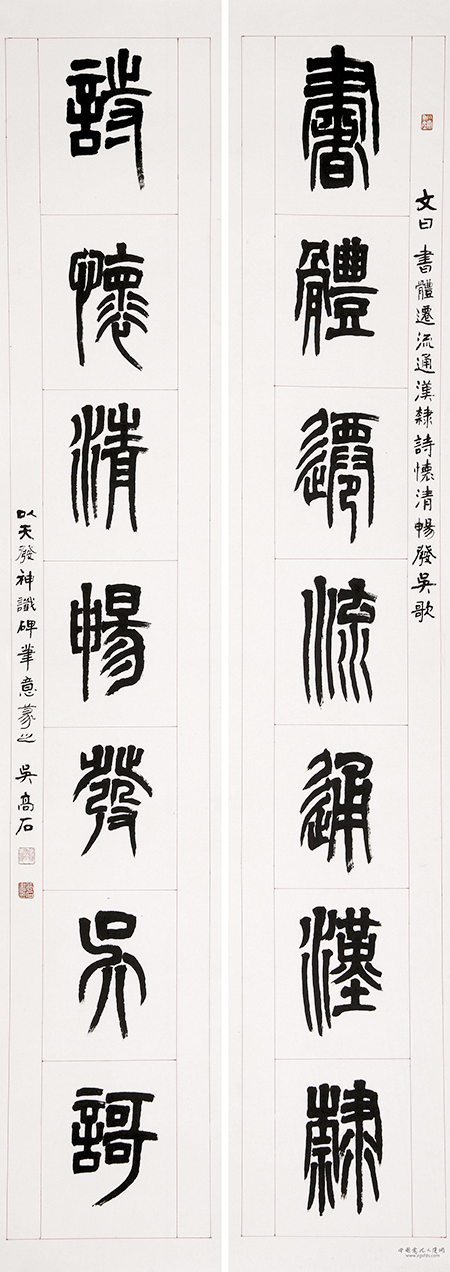 書體遷流通漢隸
文曰書體遷流通漢隸詩懷清暢發吳歌
詩懷清暢發吳謌
以天發神讖碑筆意篆之 吳高石
www.zgshfo.com